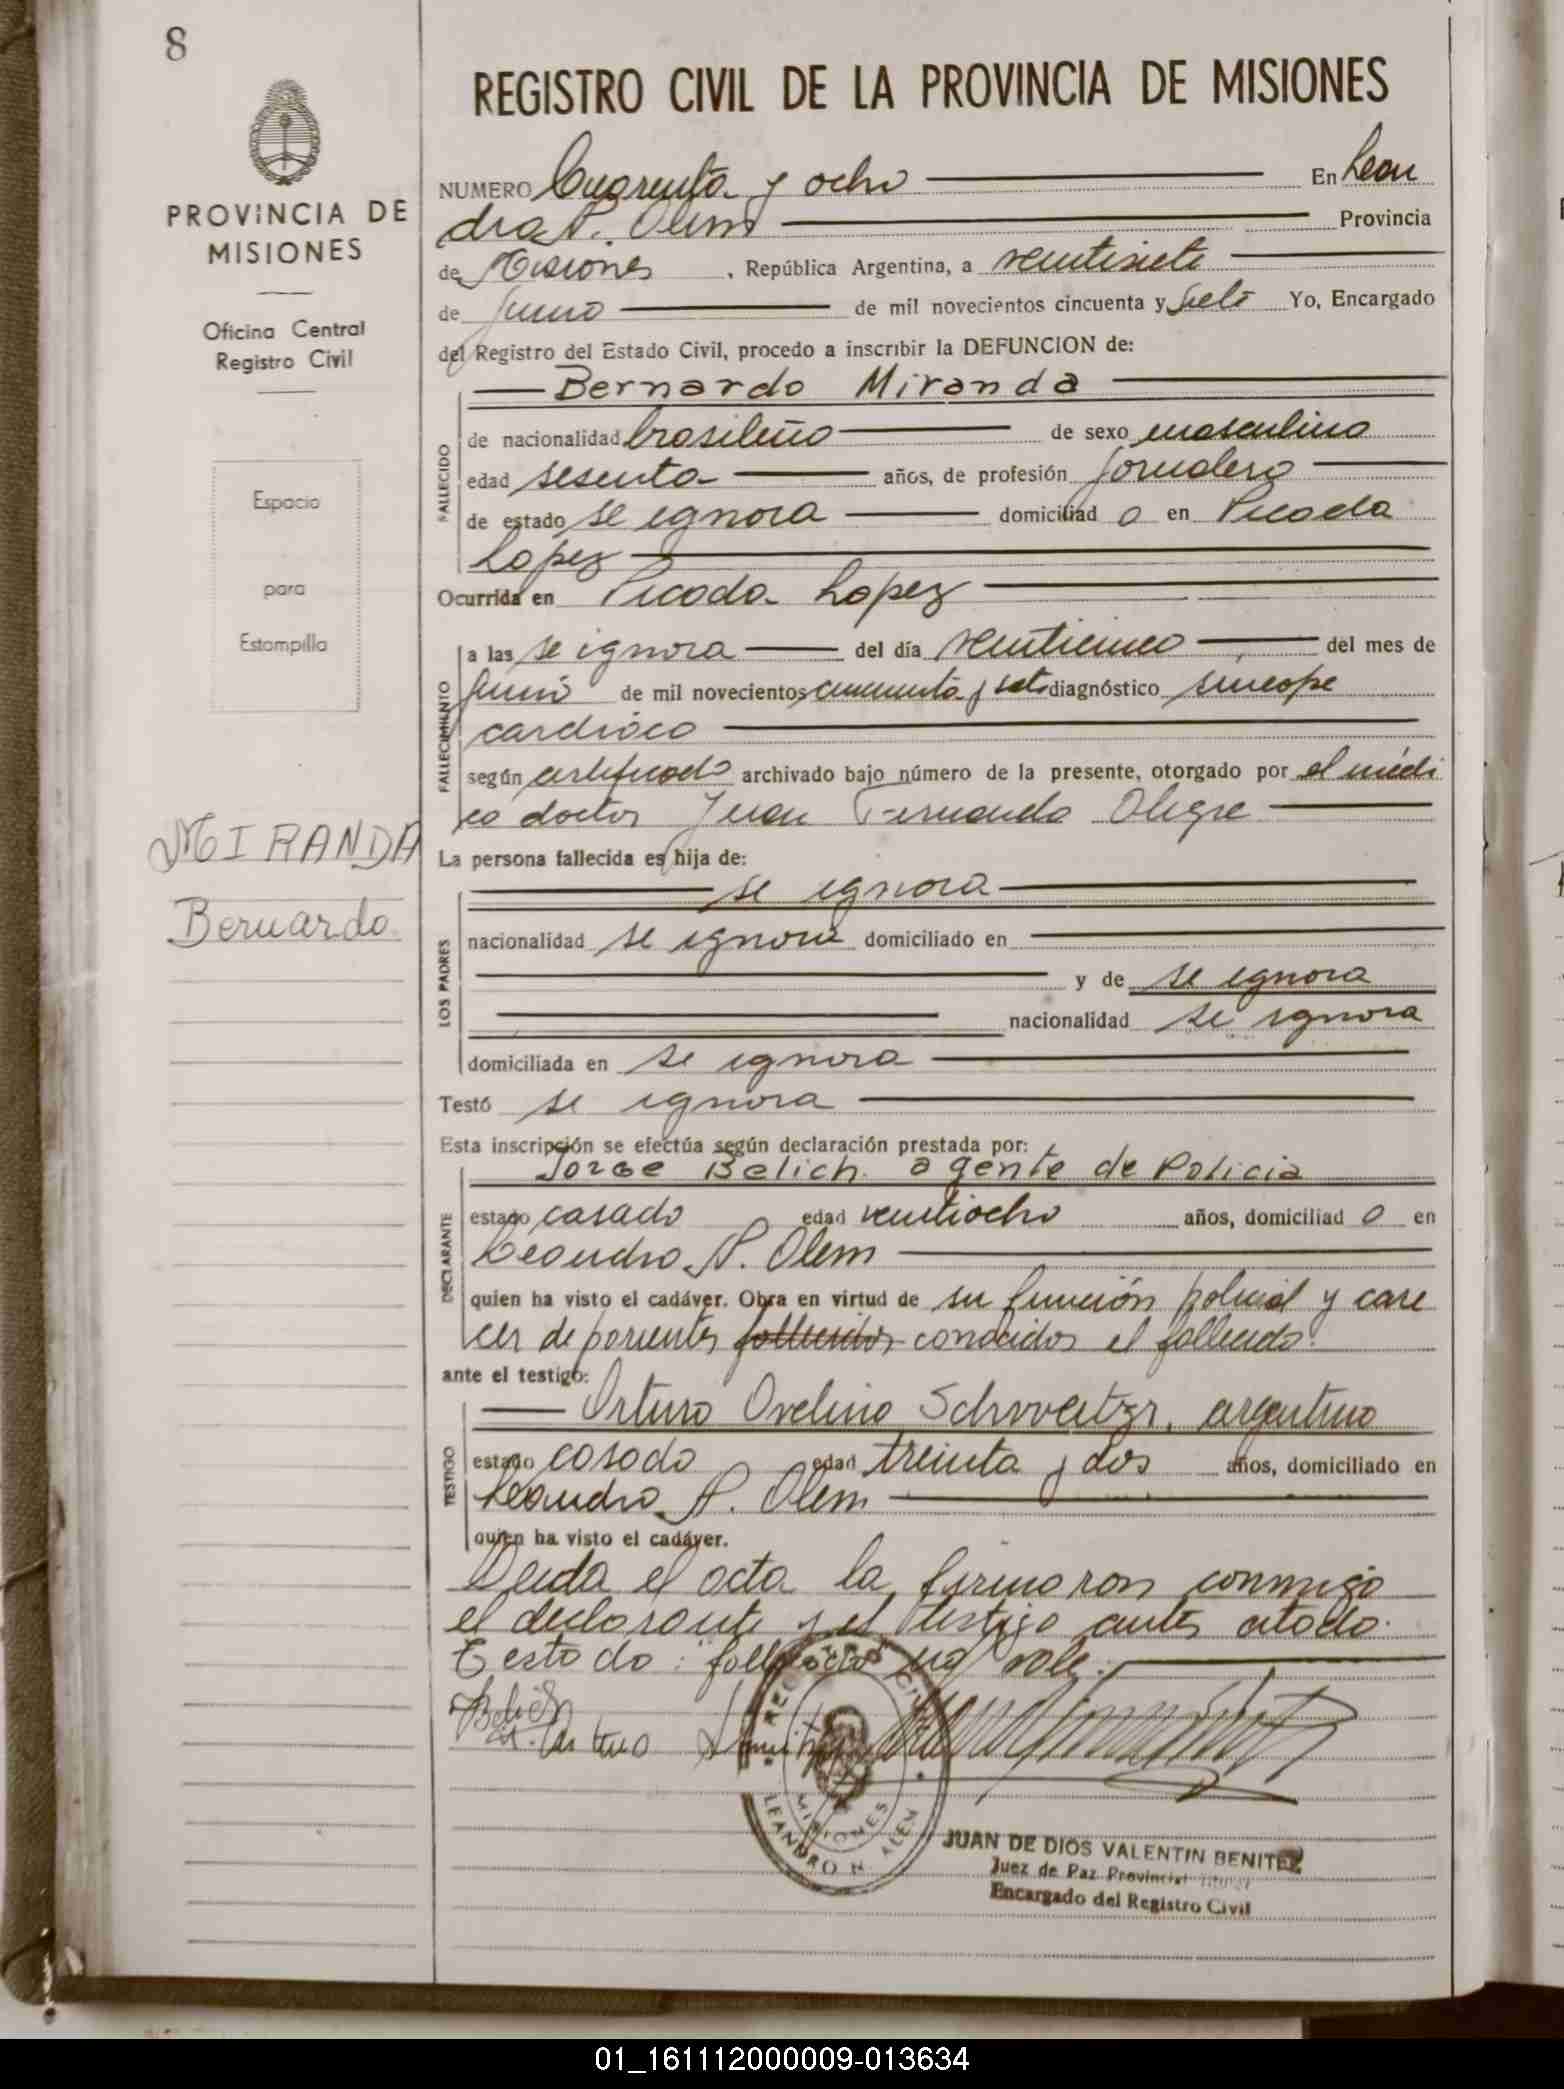 8
REGISTRO CIVIL DE LA PROVINCIA DE MISIONES
PROVINCIA DE
MISIONES
Oficina Central
Registro Civil
Espacio
para
Estampilla
MIRANDA
Bernardo
NUMERO Cuarenta y ocho En Lean
dro N. Alem Provincia
de Misiones, República Argentina, a veintisiete
de Junio de mil novecientos cincuenta y siete Yo, Encargado
del Registro del Estado Civil, procedo a inscribir la DEFUNCION de:
Bernardo Miranda
FALLECIDO
de nacionalidad brasileño de sexo masculino
edad sesenta años, de profesión jornalero
de estado se ignora domiciliad o en Picada
Lopez
Ocurrida en Picada Lopez
FALLECIMIENTO
a las se ignora del día veinticinco del mes de
Junio de mil novecientos cincuenta y siete diagnóstico sincope
cardiaco
según certificado archivado bajo número de la presente, otorgado por el médi
co doctor Juan Fernando Alegre
La persona fallecida es hija de:
LOS PADRES
se ignora
nacionalidad se ignora domiciliado en
y de se ignora
nacionalidad se ignora
domiciliada en se ignora
Testó se ignora
Esta inscripción se efectúa según declaración prestada por:
DECLARANTE
Jorge Belich agente de Policia
estado casado edad veintiocho años, domiciliad o en
Leandro N. Alem
quien ha visto el cadáver. Obra en virtud de su función policial y care
cer de parientes fallecidos conocidos el fallecido.
ante el testigo:
TESTIGO
Arturo Avelino Schweitzer, argentino
estado casado edad treinta y dos años, domiciliado en
Leandro N. Alem
quien ha visto el cadáver.
Leida el acta la firmaron conmigo
el declarante y el testigo antes citado.
Testado: fallecidos no vale.
Belich
Arturo
REGISTRO CIVIL
MISIONES
LEANDRO N. ALEM
JUAN DE DIOS VALENTIN BENITEZ
Juez de Paz Provincial Titular
Encargado del Registro Civil
01_161112000009-013634